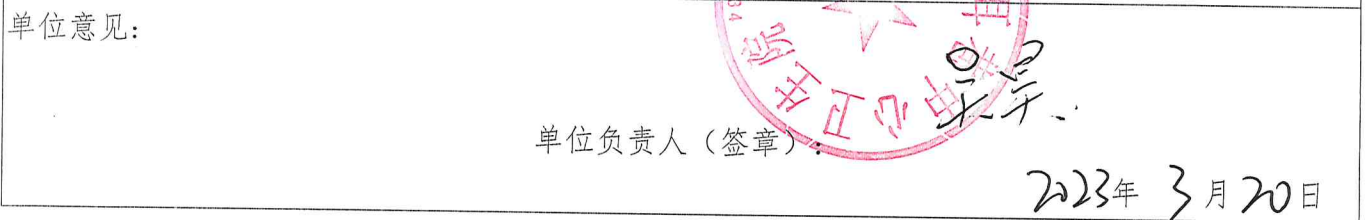 单位意见:
中心卫生院
单位负责人（签章）:
2023年 3月20日